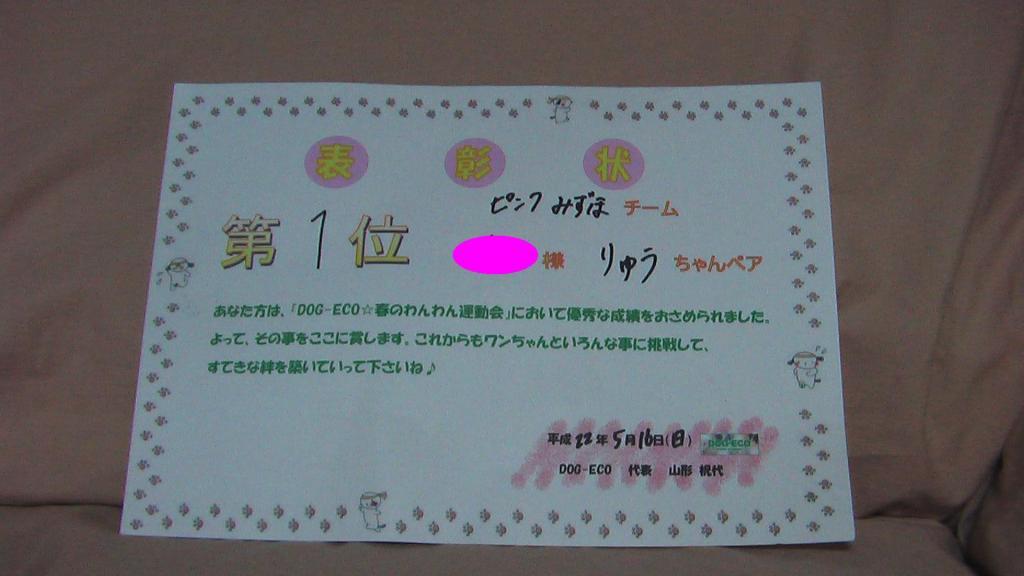 表彰状
ピンク みずほ チーム
第1位
様 りゅう ちゃんペア
あなた方は、「DOG-ECO☆春のわんわん運動会」において優秀な成績をおさめられました。
よって、その事をここに賞します。これからもワンちゃんといろんな事に挑戦して、
すてきな絆を築いていって下さいね♪
平成22年5月16日(日) DOG-ECO
DOG-ECO 代表 山形 祝代